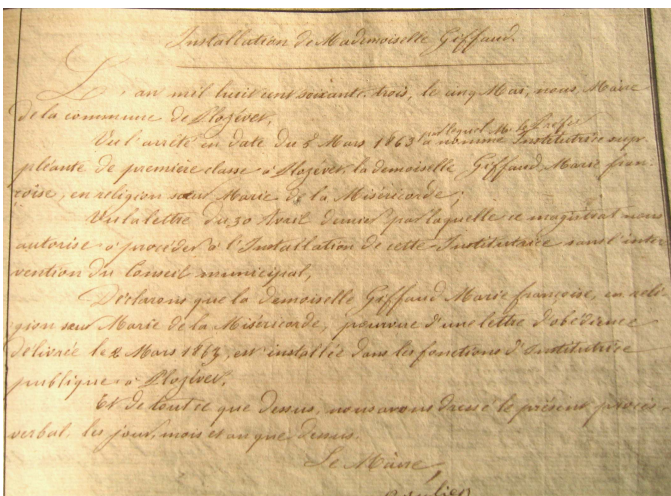 Installation de Mademoiselle Giffaud.
L'an mil huit cent soixante trois, le cinq Mai, nous, Maire
de la commune de Plozévet,
Vu l'arrêté en date du 5 Mars 1863 par lequel Mr. le Préfet
a nommé Institutrice sup-
pléante de première classe à Plozévet, la demoiselle Giffaud Marie fran-
çoise, en religion sœur Marie de la Miséricorde;
Vu la lettre du 30 Avril dernier par laquelle ce magistrat nous
autorise à procéder à l'Installation de cette Institutrice sans l'inter-
vention du Conseil municipal,
Déclarons que la demoiselle Giffaud Marie françoise, en reli-
gion sœur Marie de la Miséricorde, pourvue d'une lettre d'obédience
délivrée le 2 Mars 1863, est installée dans les fonctions d'Institutrice
publique à Plozévet.
Et de tout ce que dessus, nous avons dressé le présent procès
verbal, les jour, mois et an que dessus.
Le Maire,